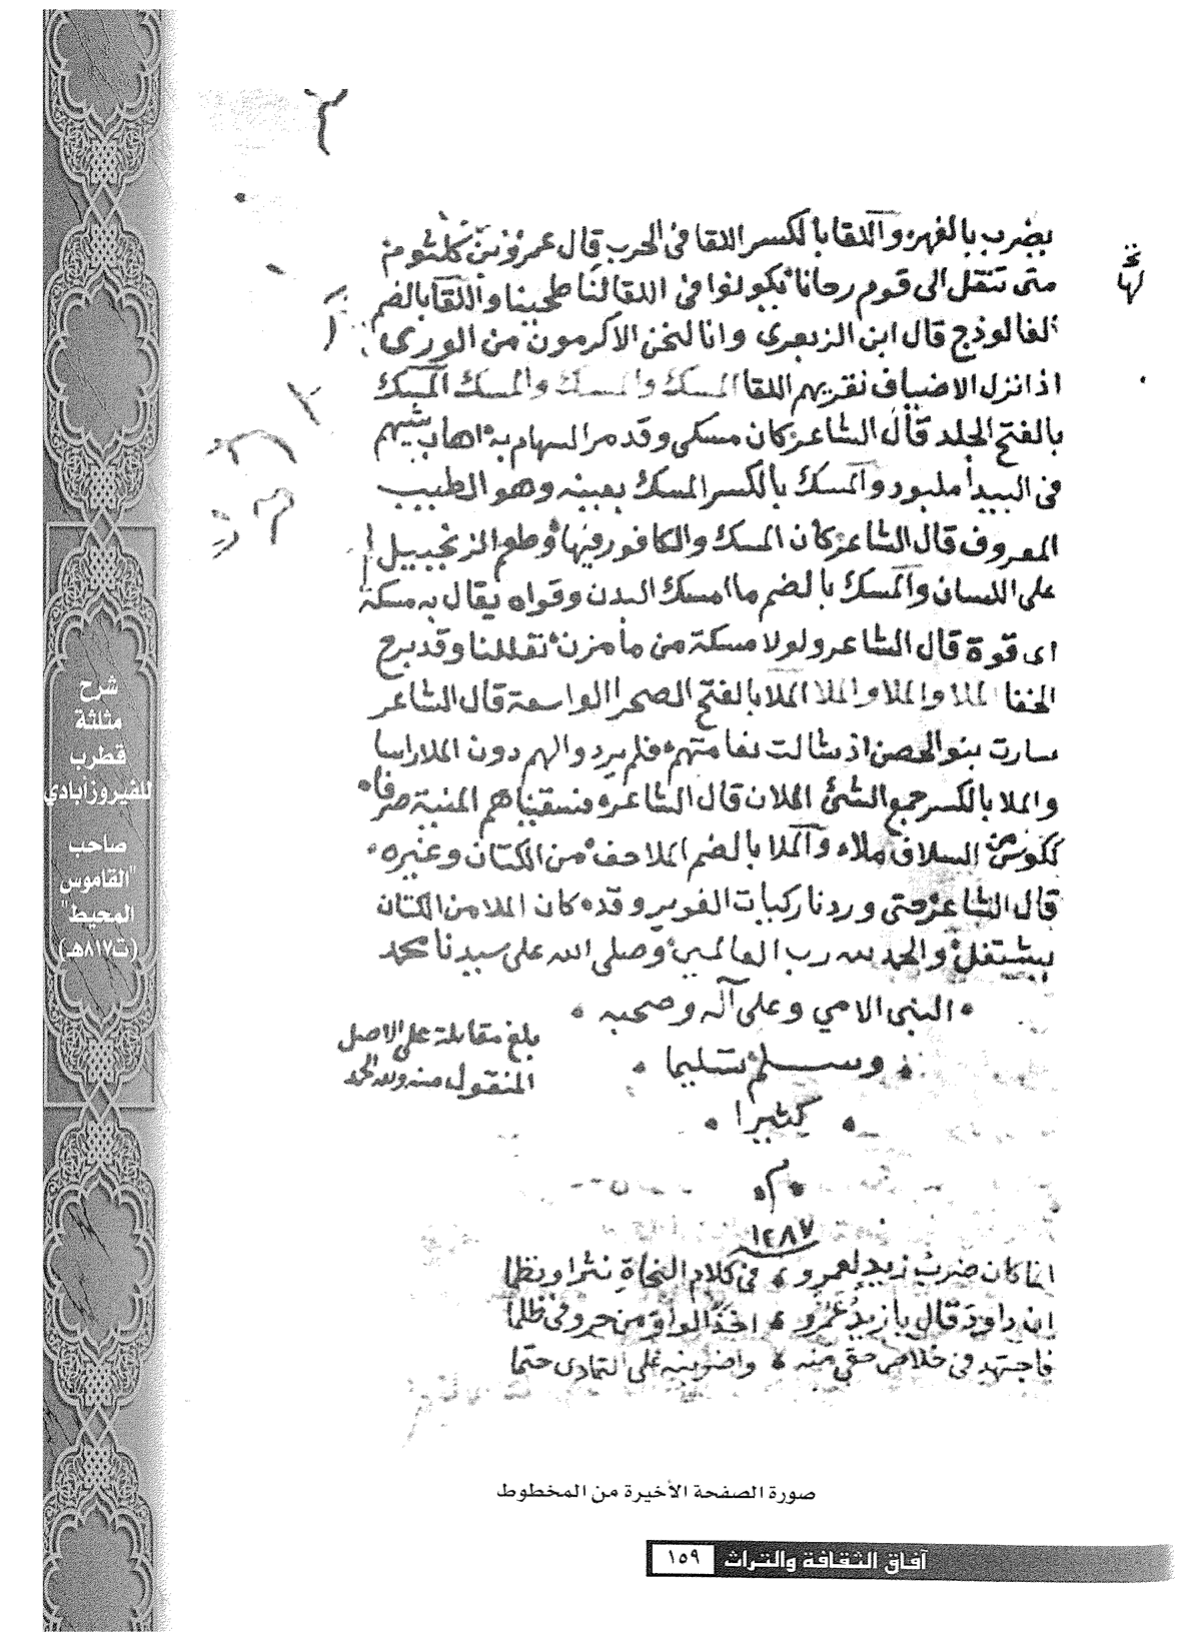 يضرب بالفهر واللقا بالكسر اللقا فى الحرب قال عمرو بن كلثوم
متى تنقل الى قوم رحانا يكولوا فى اللقا لنا طحينا واللقا بالضم
الفالوذج قال ابن الزبعرى وانا لنحن الاكرمون من الورى
اذا نزل الاضياف نقريهم اللقا المسك والمسك والمسك المسك
بالفتح الجلد قال الشاعر كان مسكى وقد مر السهام به اهاب شيهم
فى البيدأ ملبود والمسك بالكسر المسك بعينه وهو الطيب
المعروف قال الشاعر كان المسك والكافور فيها وطعم الزنجبيل
على اللسان والمسك بالضم ما امسك البدن وقواه يقال به مسكة
اى قوة قال الشاعر ولولا مسكة من مأ مزن تقللنا وقد برح
الخفا الملا والملا والملا الملا بالفتح الصحرا الواسعة قال الشاعر
سارت بنو الحصن اذ شالت نعامتهم فلم يرد والهم دون الملا راسا
والملا بالكسر جمع الشئ الملان قال الشاعر فسقيناهم المنية صرفا
ككوس من السلاف ملاء والملا بالضم الملاحف من الكتان وغيره
قال الشاعر حتى وردنا ركيات الغوير وقد كان الملا من الكتان
يشتعل والحمد لله رب العالمين وصلى الله على سيدنا محمد
النبى الامي وعلى آله وصحبه
وسلم تسليما
كثيرا
بلغ مقابلة على الاصل
المنقول منه ولله الحمد
م
١٢٨٧
انما كان ضرب زيد لعمرو فى كلام النحاة نثرا ونظما
ان داود قال يا زيد عمرو اخذ الواو من حروفى ظلما
فاجتهد فى خلاص حقي منه واضربنه على التمادى حتما
صورة الصفحة الأخيرة من المخطوط
آفاق الثقافة والتراث ١٥٩
شرح
مثلثة
قطرب
للفيروزآبادي
صاحب
"القاموس
المحيط"
(ت٨١٧هـ)